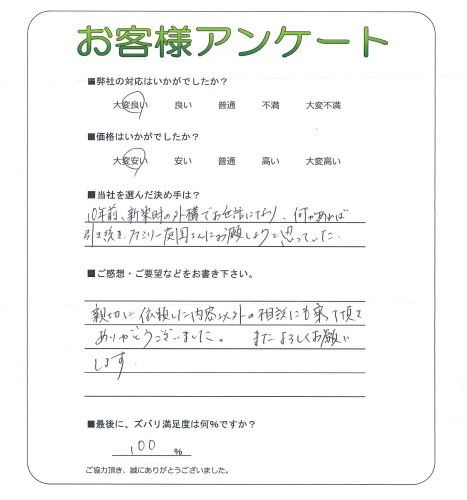 お客様アンケート
■弊社の対応はいかがでしたか？
大変良い 良い 普通 不満 大変不満
■価格はいかがでしたか？
大変安い 安い 普通 高い 大変高い
■当社を選んだ決め手は？
10年前、新築時の外構でお世話になり、何かあれば
引き続き、ファミリー庭園さんにお願しようと思っていた。
■ご感想・ご要望などをお書き下さい。
親切に依頼した内容以外の相談にも乗って頂き
ありがとうございました。 またよろしくお願い
します.
■最後に、ズバリ満足度は何%ですか？
100 %
ご協力頂き、誠にありがとうございました。